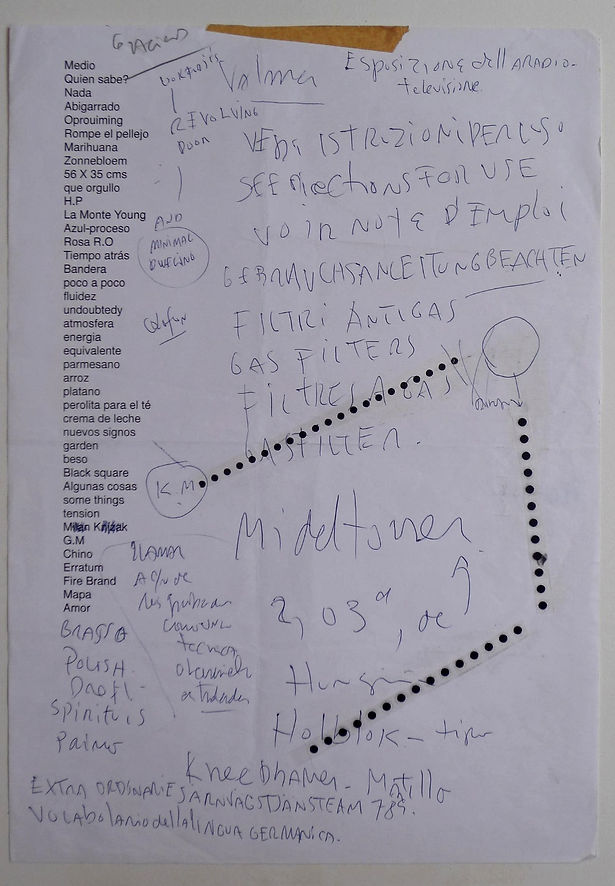 Gracias
Medio
Quien sabe?
Nada
Abigarrado
Oprouiming
Rompe el pellejo
Marihuana
Zonnebloem
56 X 35 cms
que orgullo
H.P
La Monte Young
Azul-proceso
Rosa R.O
Tiempo atrás
Bandera
poco a poco
fluidez
undoubtedy
atmosfera
energia
equivalente
parmesano
arroz
platano
perolita para el té
crema de leche
nuevos signos
garden
beso
Black square
Algunas cosas
some things
tension
Milan Knizak
G.M
Chino
Erratum
Fire Brand
Mapa
Amor
REVOLVING
DOOR
AND
MINIMAL
DWELING
Valma
ESPOSIZIONE dell ARADIO-
televisione.
VEDA ISTRUZIONI PER L'USO
SEE DIRECTIONS FOR USE
VOIR NOTE D'EMPLOI
GEBRAUCHSANLEITUNG BEACHTEN
FILTRI ANTIGAS
GAS FILTERS
FILTRES A GAS
GASFILTER.
K.M
Middltonen
2,03
de
Holblok - tipo
llamar
tecnica
BRASSO
POLISH.
Spirituis
Kneedhamer - Matillo
EXTRA ORDINARIES JARNVAGSTJANSTEAM 789.
VOCABOLARIO della LINGUA GERMANICA.